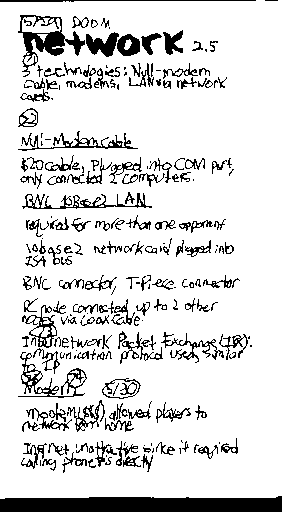 5/29 DOOM
network 2.5
3 technologies: Null-modem
cable, modems, LAN via network
cards.
Null-Modem Cable
$20 cable, plugged into COM port,
only connected 2 computers.
BNC 10Base2 LAN
required for more than one opponent
10base2 network card plugged into
ISA bus
BNC connector, T-Piece connector
PC node connected up to 2 other
nodes via coax cable.
Internetwork Packet Exchange
communication protocol used, similar
to IP
Modem 5/30
modem allowed players to
network from home
Internet unattractive since it required
calling phone #s directly